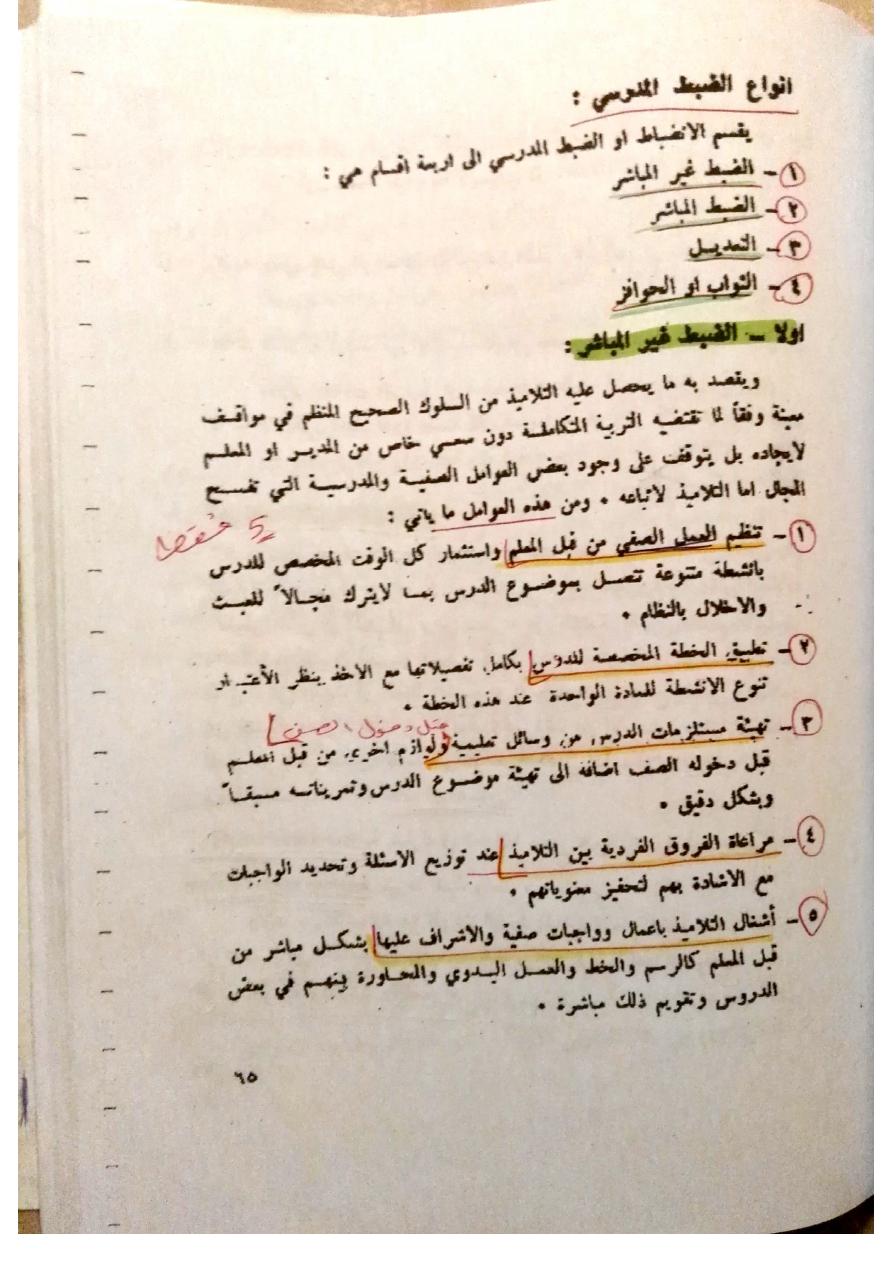 انواع الضبط المدرسي :
يقسم الانضباط او الضبط المدرسي الى اربعة اقسام هي :
١- الضبط غير المباشر
٢- الضبط المباشر
٣- التعديل
٤- الثواب او الحوافز
اولا – الضبط غير المباشر :
ويقصد به ما يحصل عليه التلاميذ من السلوك الصحيح المنظم في مواقف
معينة وفقاً لما تقتضيه التربية المتكاملة دون سعي خاص من المدير او المعلم
لايجاده بل يتوقف على وجود بعض العوامل الصفية والمدرسية التي تفسح
المجال اما التلاميذ لاتباعه ٠ ومن هذه العوامل ما ياتي :
١- تنظيم العمل الصفي من قبل المعلم واستثمار كل الوقت المخصص للدرس
بانشطة متنوعة تتصل بموضوع الدرس بما لايترك مجالاً للعبث
والاخلال بالنظام ٠
٢- تطبيق الخطة المخصصة للدرس بكامل تفصيلاتها مع الاخذ بنظر الأعتبار
تنوع الانشطة للمادة الواحدة عند هذه الخطة ٠
قبل دخول الصف
٣- تهيئة مستلزمات الدرس من وسائل تعليمية ولوازم اخرى من قبل المعلم
قبل دخوله الصف اضافه الى تهيئة موضوع الدرس وتمريناته مسبقاً
وبشكل دقيق ٠
٤- مراعاة الفروق الفردية بين التلاميذ عند توزيع الاسئلة وتحديد الواجبات
مع الاشادة بهم لتحفيز معنوياتهم ٠
٥- أشغال التلاميذ باعمال وواجبات صفية والاشراف عليها بشكل مباشر من
قبل المعلم كالرسم والخط والعمل اليدوي والمحاورة بينهم في بعض
الدروس وتقويم ذلك مباشرة ٠
٦٥